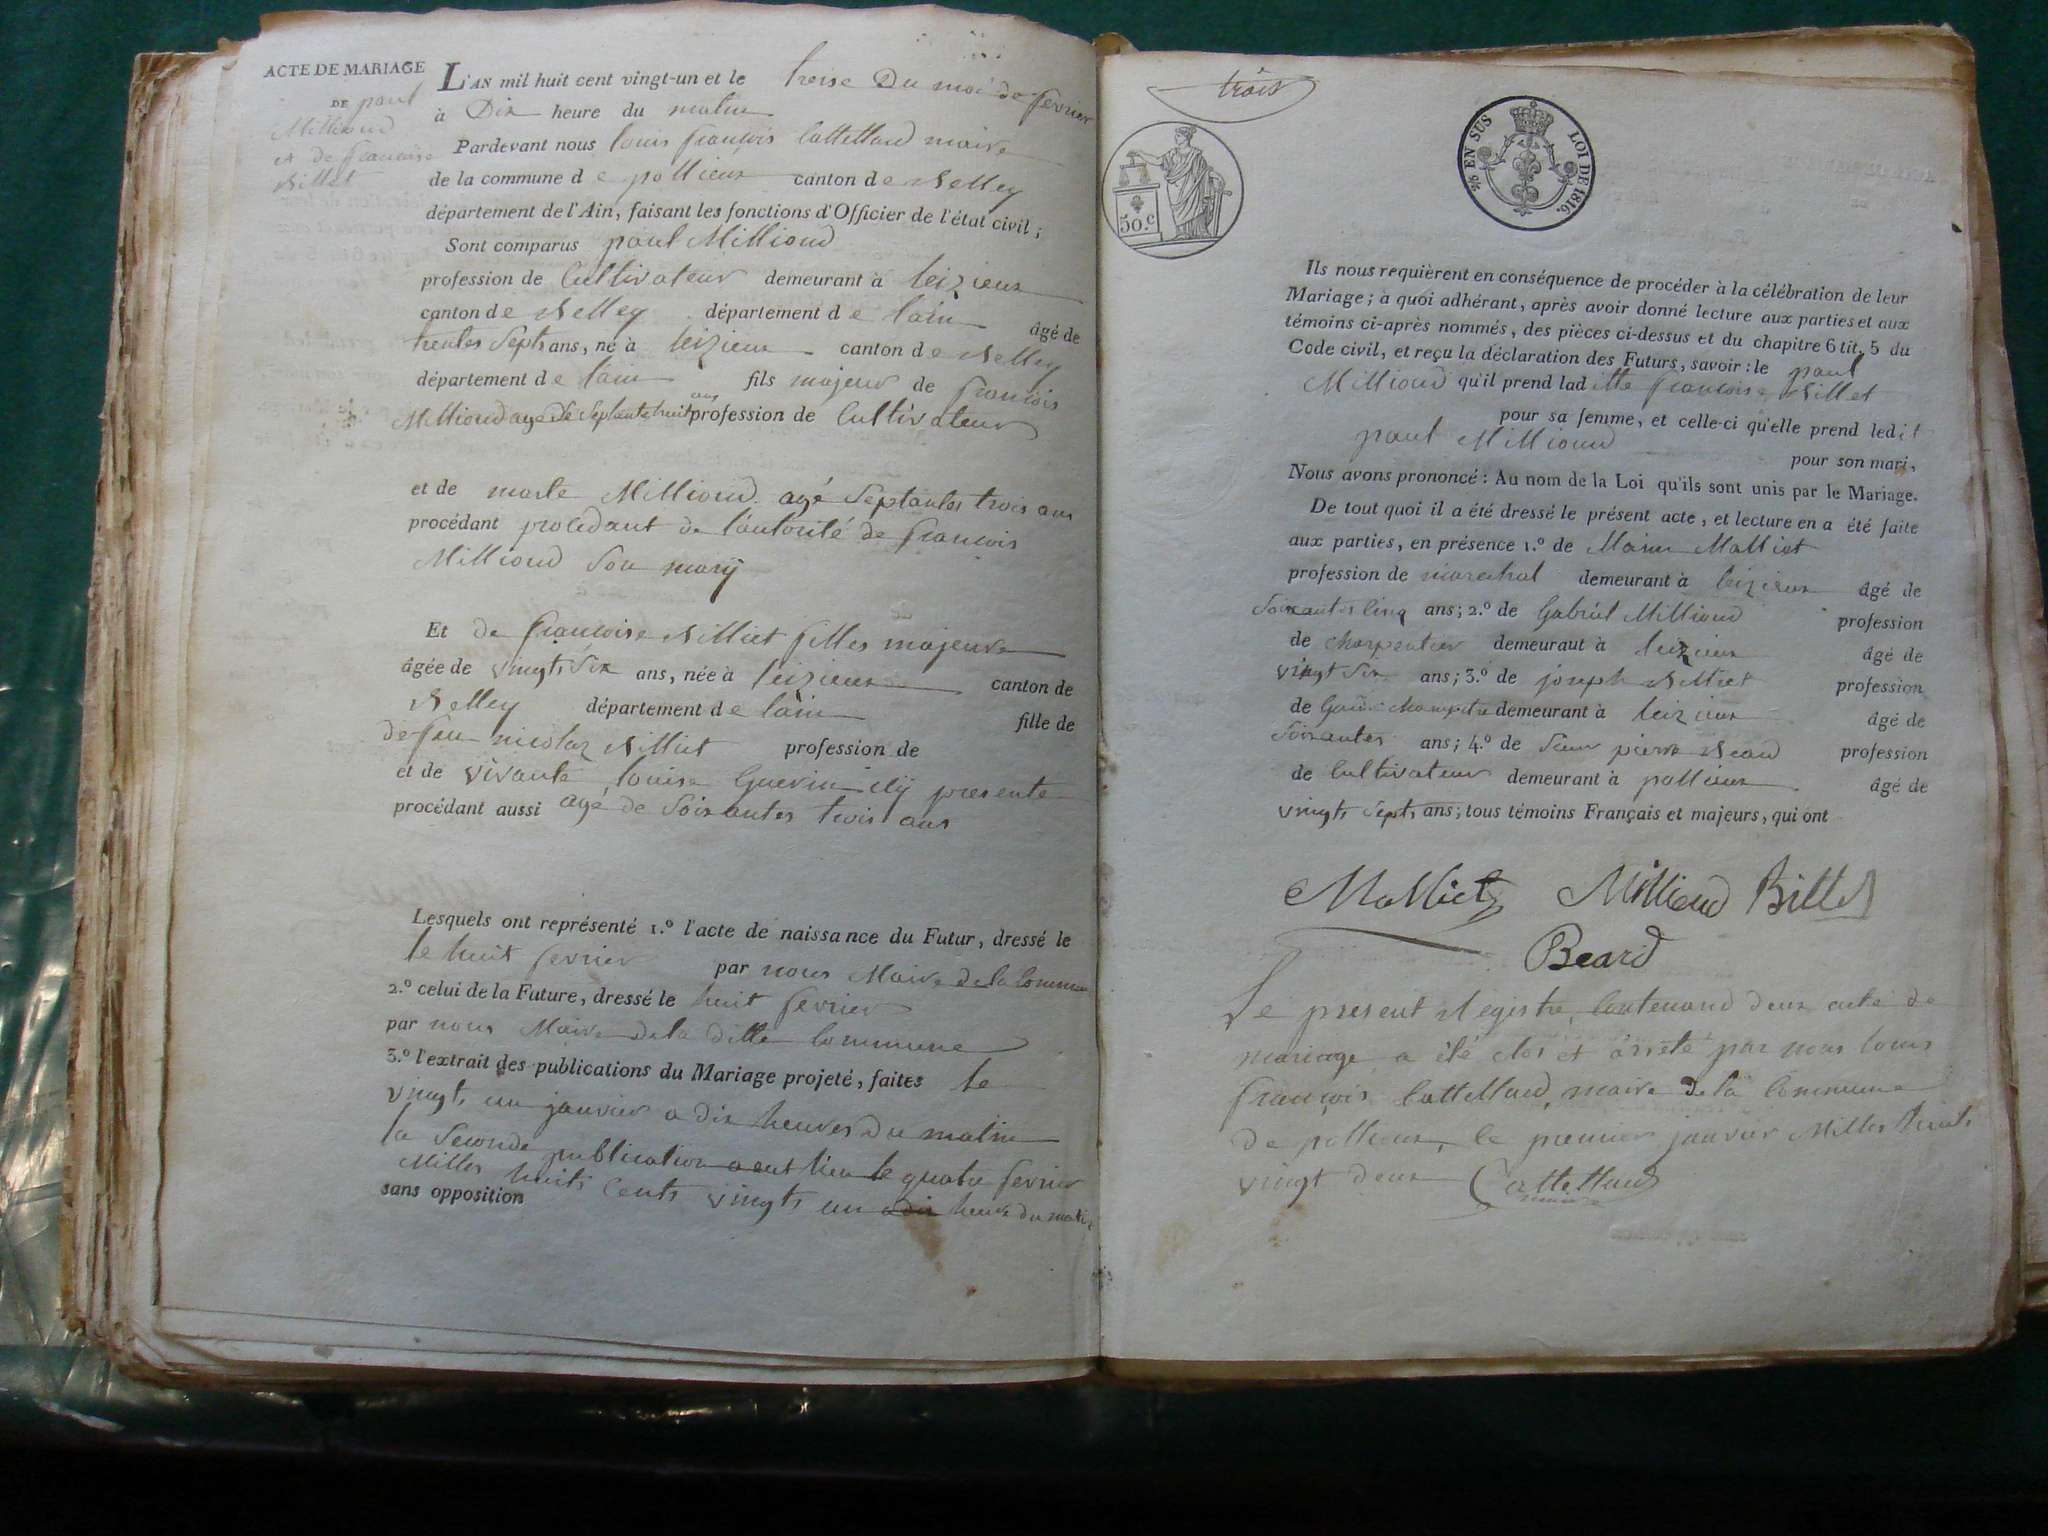 ACTE DE MARIAGE
DE paul
Millioud
et de francoise
Billet
L'AN mil huit cent vingt-un et le treise Du moi de fevrier
à Dix heure du matin
Pardevant nous louis françois Cattelland maire
de la commune de pollieux canton de Belley
département de l'Ain, faisant les fonctions d'Officier de l'état civil;
Sont comparus paul Millioud
profession de Cultivateur demeurant à leizieux
canton de Belley département de lain âgé de
trentes Septs ans, né à leizieux canton de Belley
département de lain fils majeur de francois
Millioud age de Septante huit ans profession de Cultivateur
et de marte Millioud agé Septantes trois ans
procédant procedant de l'autorité de francois
Millioud Son marÿ
Et de françoise Billiet filles majeure
âgée de vingts Six ans, née à leizieux canton de
Belley département de lain fille de
de feu nicolas Billiet profession de
et de vivante louise Guerin ilÿ presente
procédant aussi age de Soixantes trois ans
Lesquels ont représenté 1.º l'acte de naissance du Futur, dressé le
le huit fevrier par nous Maire de la Commune
2.º celui de la Future, dressé le huit fevrier
par nous Maire de la ditte Commune
3.º l'extrait des publications du Mariage projeté, faites le
vingts un janvier a dix heures du matin
la Seconde publication a eut lieu le quatre fevrier
Milles huits Cents vingts un a dix heure du matin
sans opposition
trois
50.c
% EN SUS LOI DE 1816.
Ils nous requièrent en conséquence de procéder à la célébration de leur
Mariage; à quoi adhérant, après avoir donné lecture aux parties et aux
témoins ci-après nommés, des pièces ci-dessus et du chapitre 6 tit. 5 du
Code civil, et reçu la déclaration des Futurs, savoir: le paul
Millioud qu'il prend lad itte françoise Billet
pour sa femme, et celle-ci qu'elle prend ledit
paul Millioud pour son mari,
Nous avons prononcé: Au nom de la Loi qu'ils sont unis par le Mariage.
De tout quoi il a été dressé le présent acte, et lecture en a été faite
aux parties, en présence 1.º de Malliet
profession de marechal demeurant à leizieux âgé de
Soixantes Cinq ans; 2.º de Gabriel Millioud profession
de charpentier demeuraut à leizieux âgé de
vingt Six ans; 3.º de joseph Billiet profession
de Garde Champetre demeurant à leizieux âgé de
Soixantes ans; 4.º de pierre Beard profession
de Cultivateur demeurant à pollieux âgé de
vingts Septs ans; tous témoins Français et majeurs, qui ont
Malliet Millioud Billet
Beard
Le present Registre Contenand deux acte de
mariage a été clos et arrete par nous louis
françois Cattelland maire de la Commune
de pollieux, le premier janvier Milles huits
vingt deux Cattelland
maire